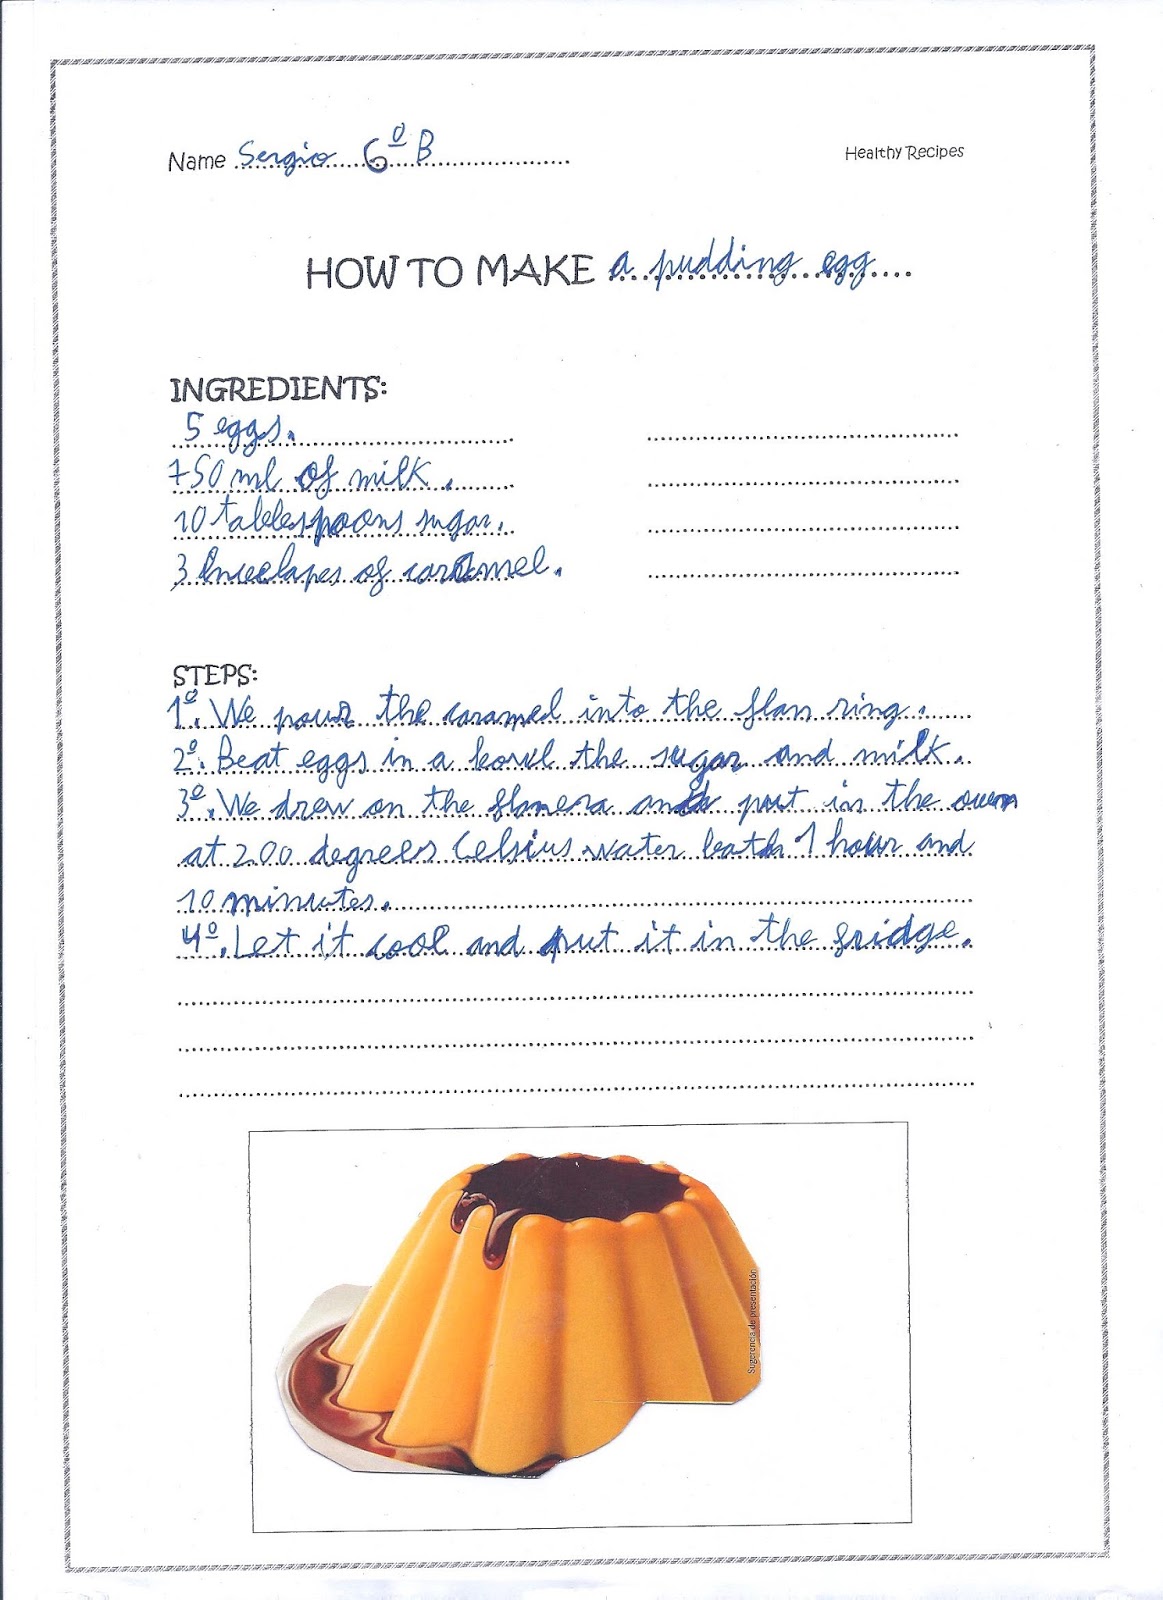 Name Sergio 6º B
Healthy Recipes
HOW TO MAKE a pudding egg
INGREDIENTS:
5 eggs.
750 ml of milk.
10 tablespoons sugar.
3 envelapes of caramel.
STEPS:
1º. We pour the caramel into the flan ring.
2º. Beat eggs in a bowl the sugar and milk.
3º. We drew on the flanera and put in the oven
at 200 degrees Celsius water bath 1 hour and
10 minutes.
4º. Let it cool and put it in the fridge.
Sugerencia de presentación